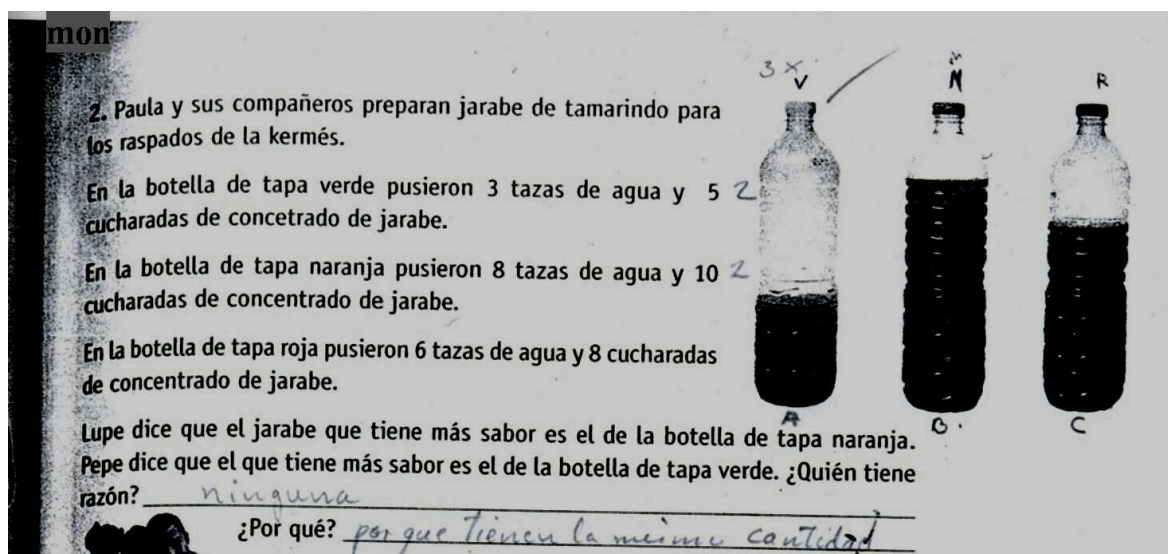 mon
3 x V
N
R
2. Paula y sus compañeros preparan jarabe de tamarindo para
los raspados de la kermés.
En la botella de tapa verde pusieron 3 tazas de agua y 5 2
cucharadas de concetrado de jarabe.
En la botella de tapa naranja pusieron 8 tazas de agua y 10 2
cucharadas de concentrado de jarabe.
En la botella de tapa roja pusieron 6 tazas de agua y 8 cucharadas
de concentrado de jarabe.
A B. C
Lupe dice que el jarabe que tiene más sabor es el de la botella de tapa naranja.
Pepe dice que el que tiene más sabor es el de la botella de tapa verde. ¿Quién tiene
razón? ninguna
¿Por qué? por que tienen la misma cantidad